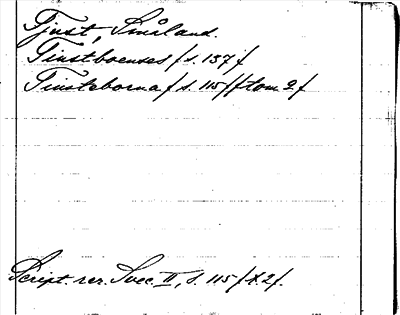 Tjust, Småland.
Tiustboenses / s. 137 /
Tiusteborna / s. 115 / / tom 2 /
Script. rer. Svec. II, s. 115 / t. 2 /.